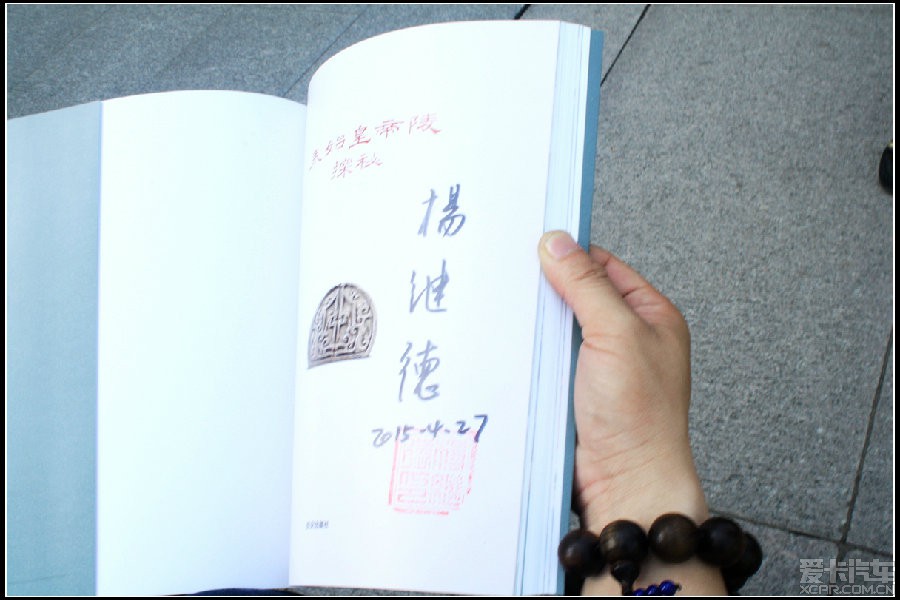 秦始皇帝陵
探秘
楊
继
德
2015-4-27
爱卡汽车
XCAR.COM.CN